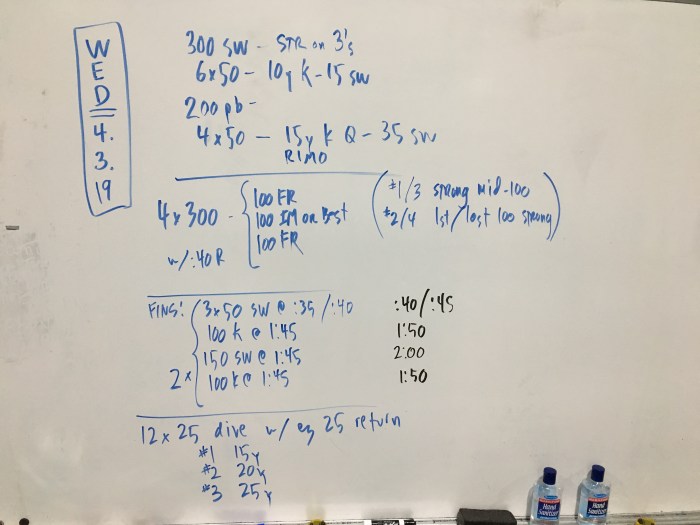 WED 4.3.19
300 SW - STR on 3's
6x50 - 10y K - 15 SW
200 pb -
4x50 - 15y K Q - 35 SW
RIMO
4x300 - w/:40R
100 FR
100 IM or Best
100 FR
(#1/3 strong mid-100
#2/4 1st/last 100 strong)
FINS:
2x
3x50 SW @ :35/:40 :40/:45
100 K @ 1:45 1:50
150 SW @ 1:45 2:00
100 K @ 1:45 1:50
12x25 dive w/ ez 25 return
#1 15y
#2 20y
#3 25y
Hand Sanitizer
Hand Sanitizer